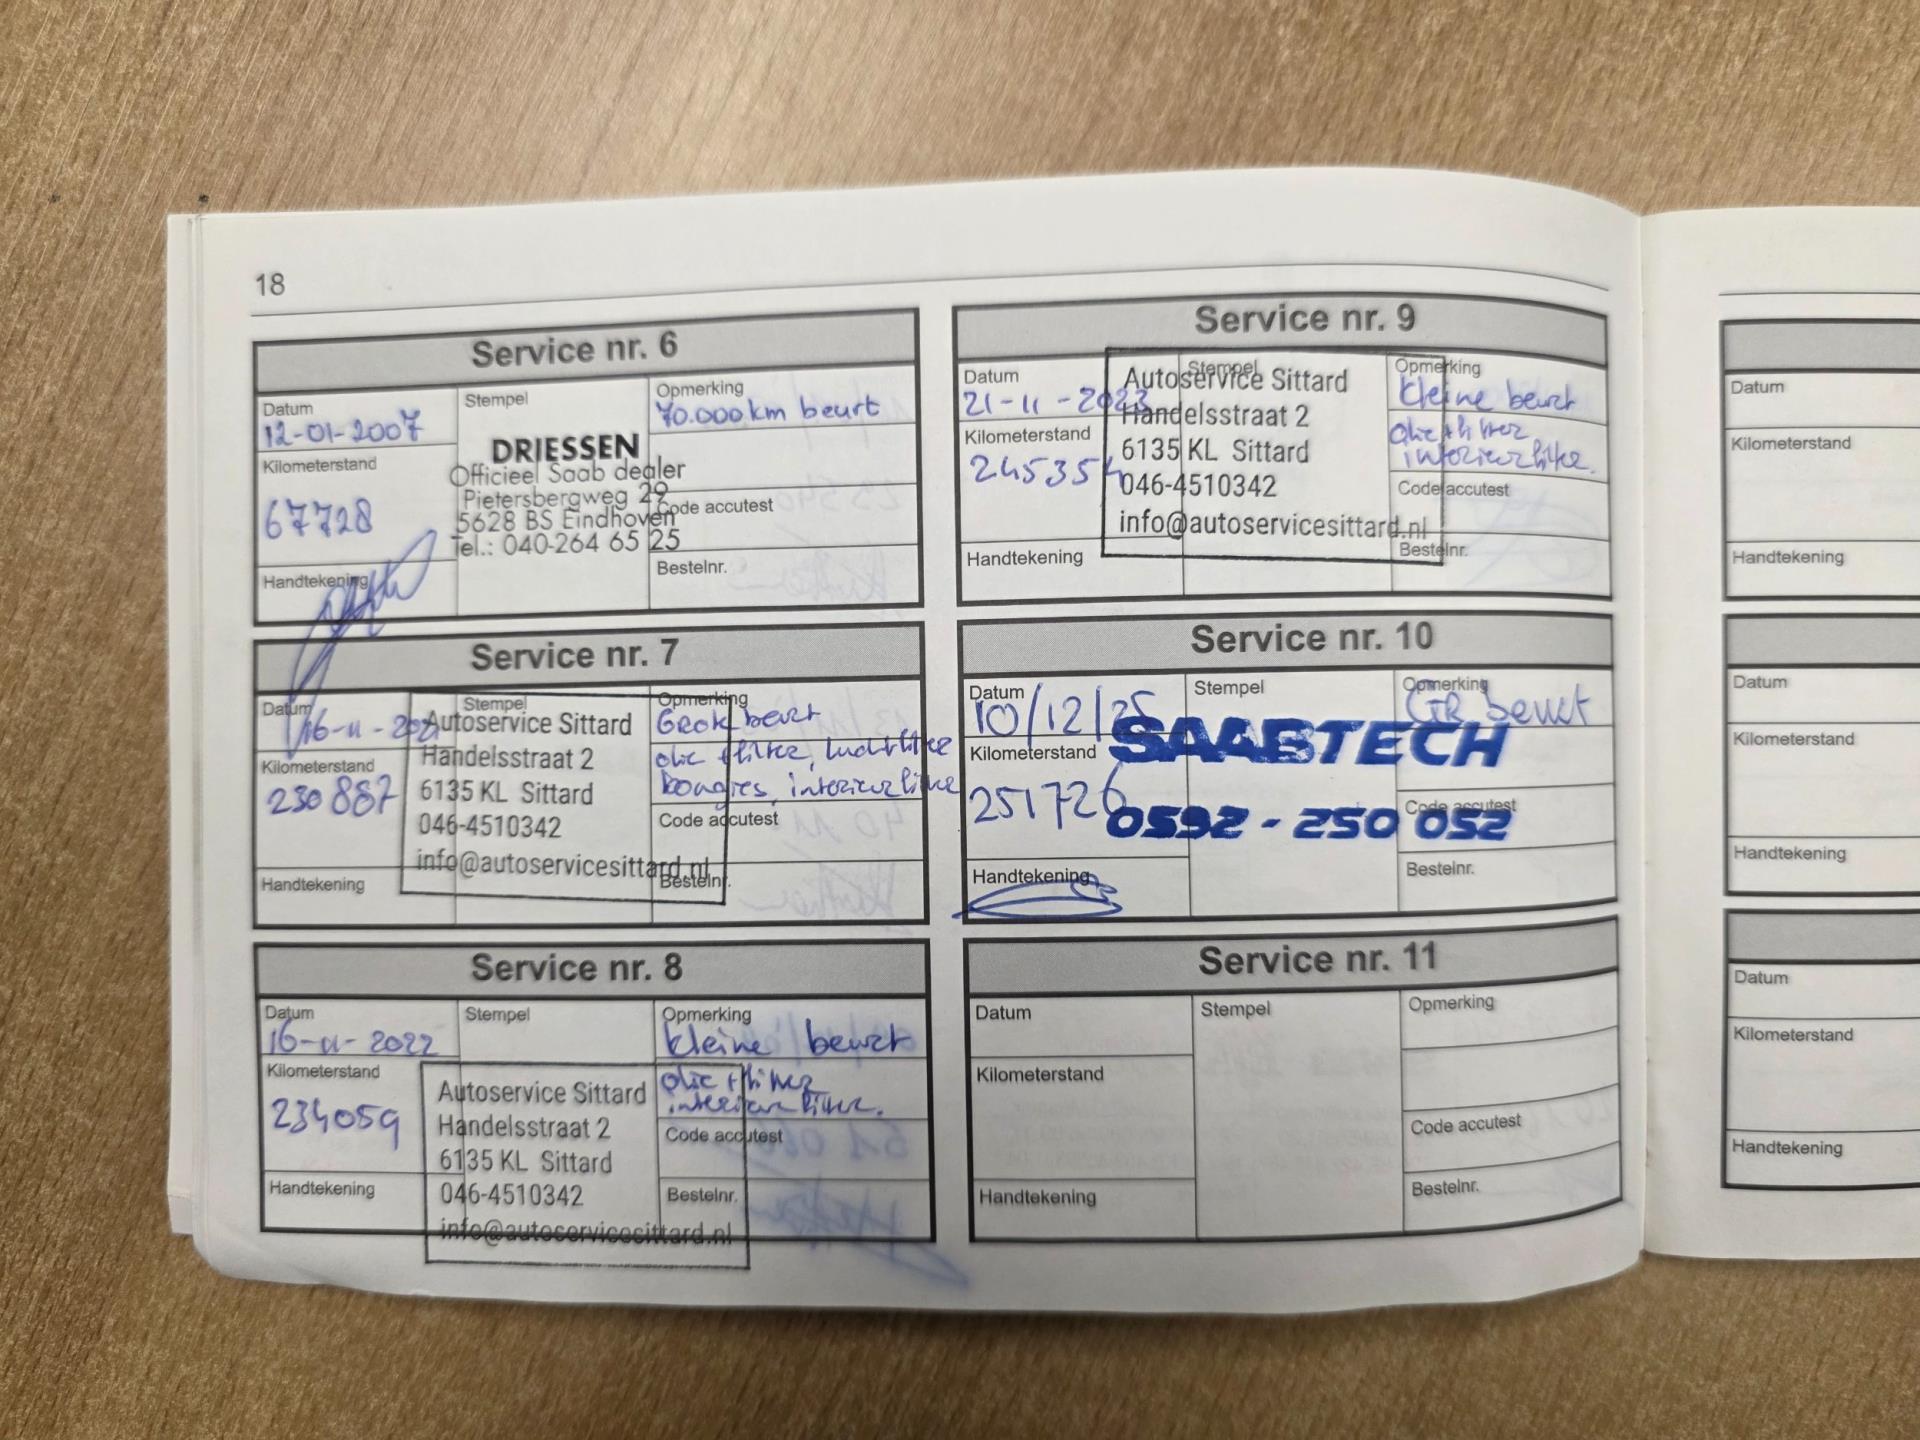 18
Service nr. 6
Datum
12-01-2007
Kilometerstand
67728
Handtekening
Stempel
DRIESSEN
Officieel Saab dealer
Pietersbergweg 29
5628 BS Eindhoven
Tel.: 040-264 65 25
Opmerking
70.000 km beurt
Code accutest
Bestelnr.
Service nr. 7
Datum
16-11-2021
Kilometerstand
230887
Handtekening
Stempel
Autoservice Sittard
Handelsstraat 2
6135 KL Sittard
046-4510342
info@autoservicesittard.nl
Opmerking
Grote beurt
olie + filter, luchtfilter
bougies, interieurfilter
Code accutest
Bestelnr.
Service nr. 8
Datum
16-11-2022
Kilometerstand
234059
Handtekening
Stempel
Autoservice Sittard
Handelsstraat 2
6135 KL Sittard
046-4510342
info@autoservicesittard.nl
Opmerking
kleine beurt
olie + filter
interieurfilter.
Code accutest
Bestelnr.
Service nr. 9
Datum
21-11-2023
Kilometerstand
245354
Handtekening
Stempel
Autoservice Sittard
Handelsstraat 2
6135 KL Sittard
046-4510342
info@autoservicesittard.nl
Opmerking
kleine beurt
olie + filter
interieurfilter.
Code accutest
Bestelnr.
Service nr. 10
Datum
10/12/25
Kilometerstand
251726
Handtekening
Stempel
SAABTECH
0592-250 052
Opmerking
GR beurt
Code accutest
Bestelnr.
Service nr. 11
Datum
Kilometerstand
Handtekening
Stempel
Opmerking
Code accutest
Bestelnr.
Datum
Kilometerstand
Handtekening
Datum
Kilometerstand
Handtekening
Datum
Kilometerstand
Handtekening